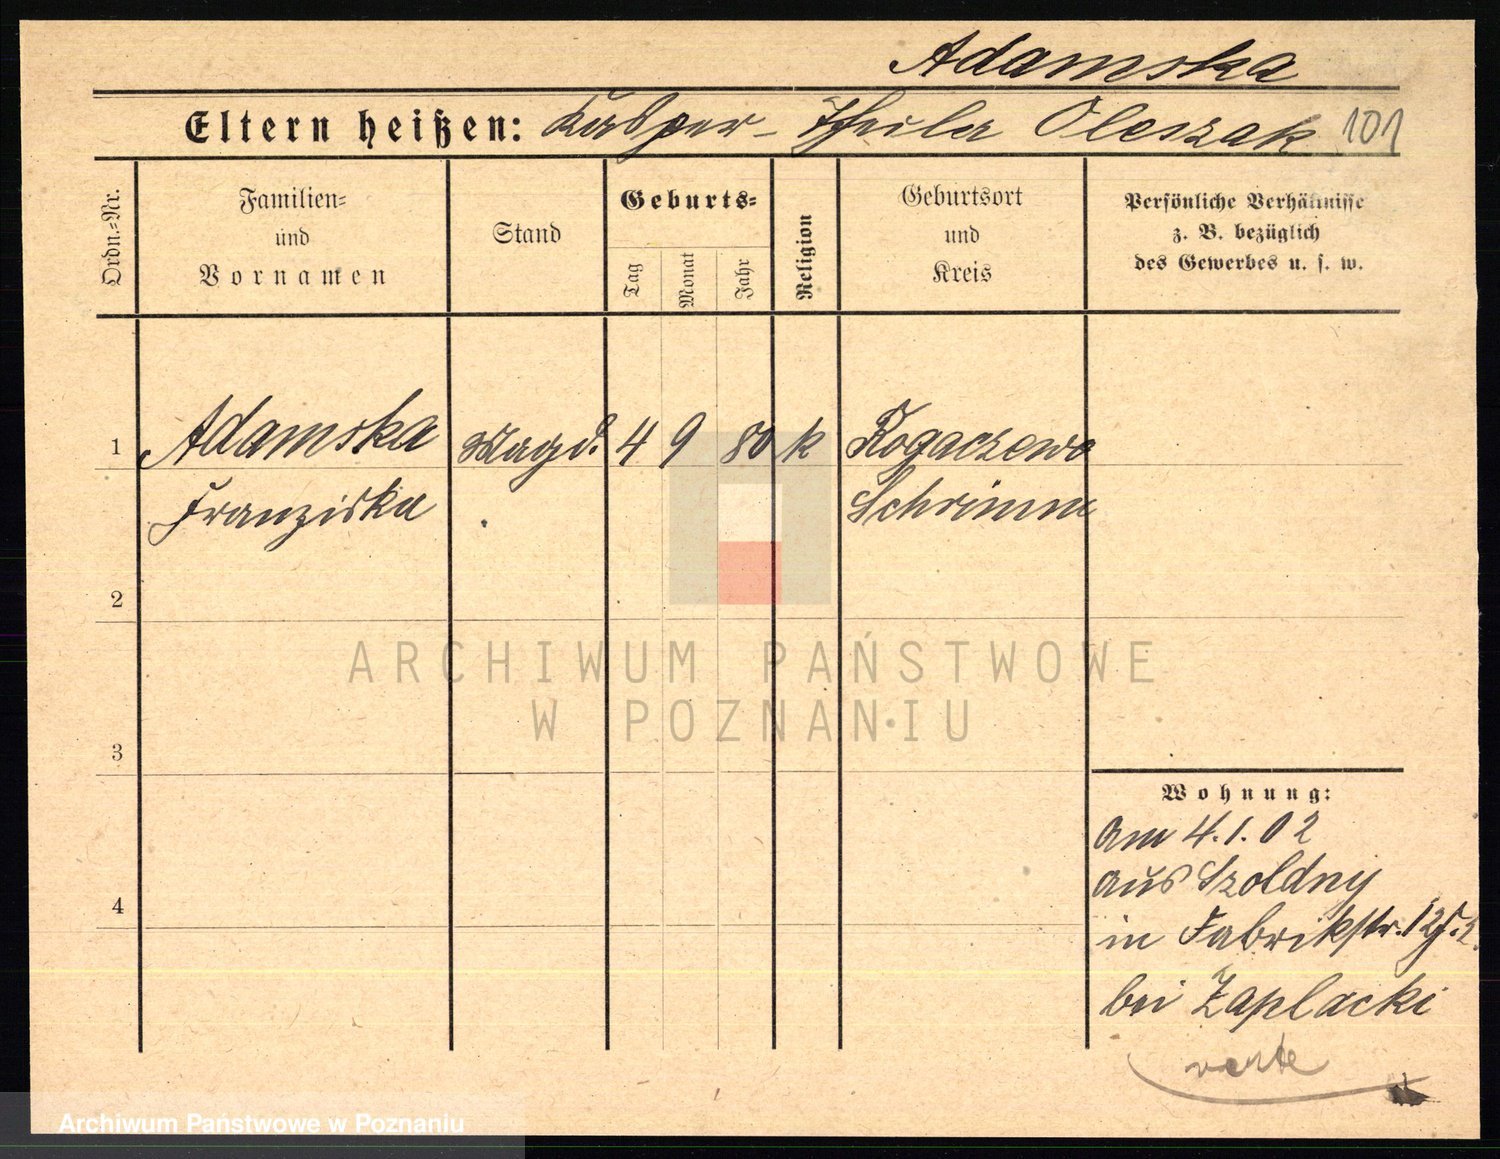 Adamska
Eltern heißen: Kasper - Thecla Oleszak 101
Ordn.-Nr.
Familien-
und
Vornamen
Stand
Geburts-
Tag
Monat
Jahr
Religion
Geburtsort
und
Kreis
Persönliche Verhältnisse
z. B. bezüglich
des Gewerbes u. s. w.
1 Adamska Magd. 4 9 80 k Rogaczewo
Franziska Schrimm
2
3
4
ARCHIWUM PAŃSTWOWE
W POZNANIU
Wohnung:
am 4.1.02
aus Szoldny
in Fabrikstr. 12
bei Zaplacki
verte
Archiwum Państwowe w Poznaniu